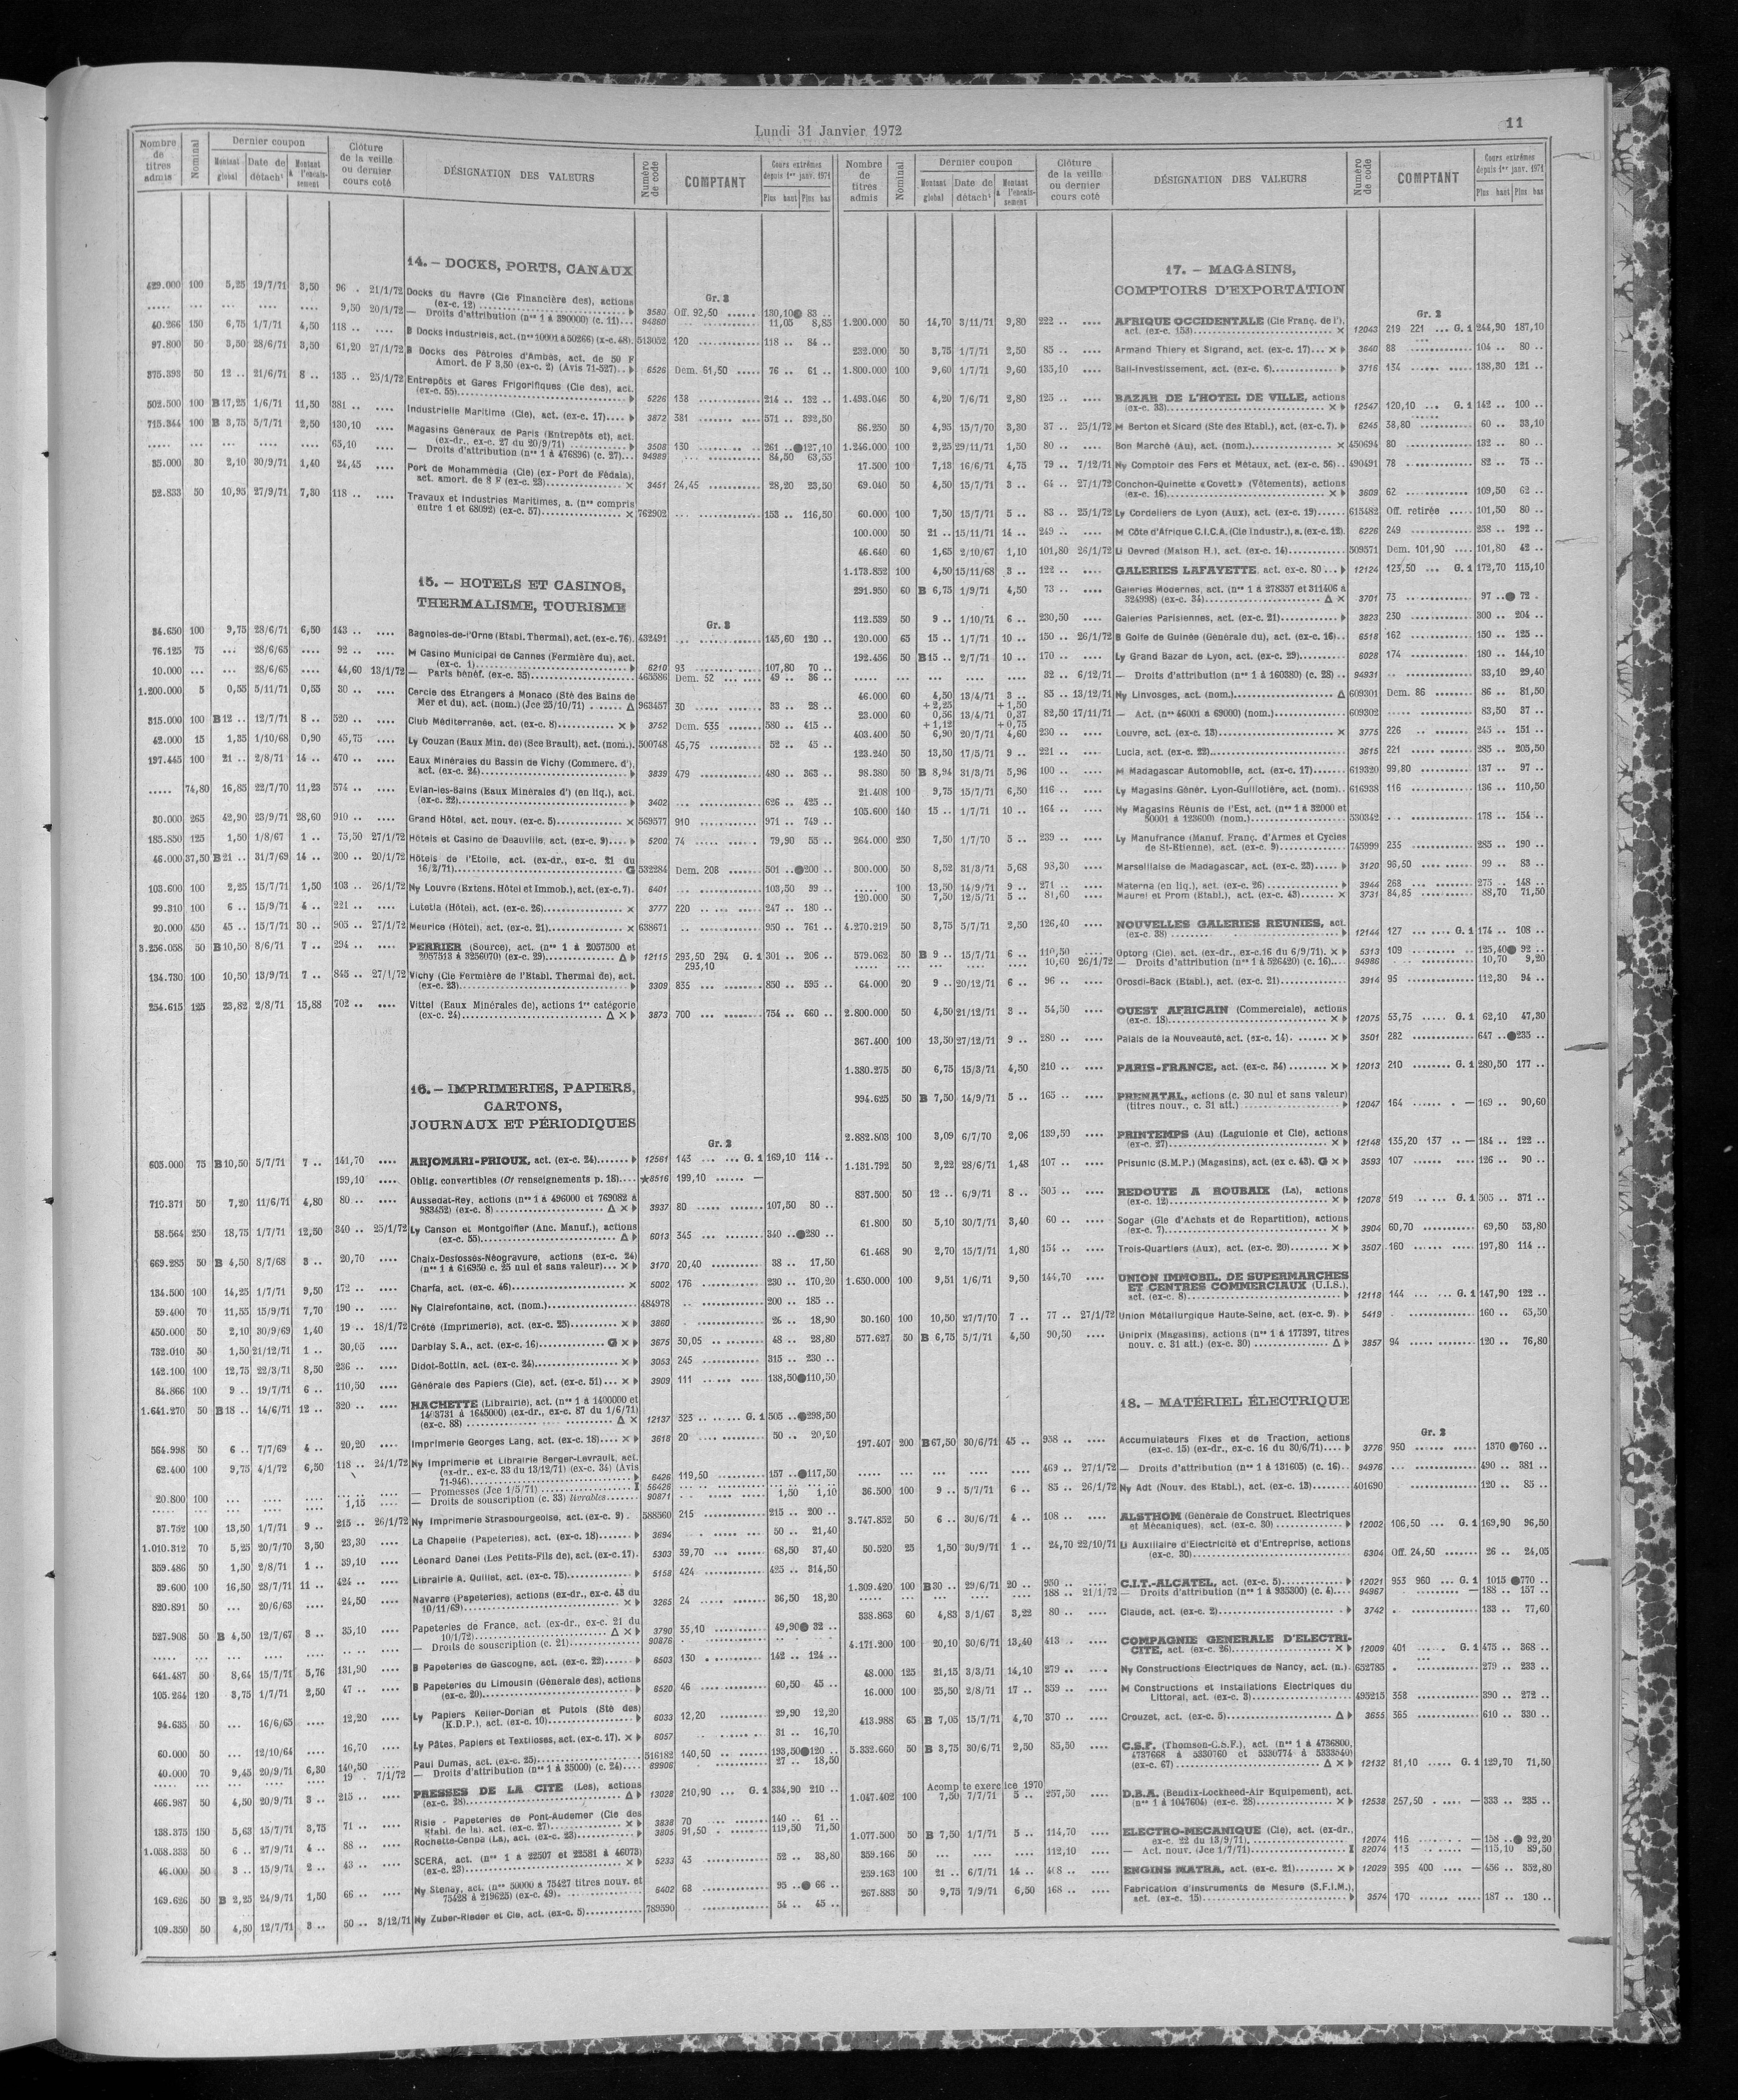 Lundi 31 Janvier 1972
11
Nombre de titres admis
Nominal
Dernier coupon
Montant global
Date de détacht
Montant à l'encaissement
Clôture de la veille ou dernier cours coté
DÉSIGNATION DES VALEURS
Numéro de code
COMPTANT
Cours extrêmes depuis 1er janv. 1971
Plus haut
Plus bas
14. — DOCKS, PORTS, CANAUX
Gr. 2
429.000 100 5,25 19/7/71 3,50 96 . 21/1/72 Docks du Havre (Cie Financière des), actions
(ex-c. 12) 3580 Off. 92,50 130,10● 83 ..
9,50 20/1/72 — Droits d'attribution (nos 1 à 390000) (c. 11)... 94860 11,05 8,85
40.266 150 6,75 1/7/71 4,50 118 .. B Docks Industriels, act. (nos 10001 à 50266) (x-c. 48). 513052 120 118 .. 84 ..
97.800 50 3,50 28/6/71 3,50 61,20 27/1/72 B Docks des Pétroles d'Ambès, act. de 50 F
Amort. de F 3,50 (ex-c. 2) (Avis 71-527).. 6526 Dem. 61,50 76 .. 61 ..
375.393 50 12 .. 21/6/71 8 .. 135 .. 25/1/72 Entrepôts et Gares Frigorifiques (Cie des), act.
(ex-c. 55) 5226 138 214 .. 132 ..
502.500 100 B 17,25 1/6/71 11,50 381 .. Industrielle Maritime (Cie), act. (ex-c. 17).... 3872 381 571 .. 392,50
715.344 100 B 3,75 5/7/71 2,50 130,10 Magasins Généraux de Paris (Entrepôts et), act.
(ex-dr., ex-c. 27 du 20/9/71) 3508 130 261 ..●127,10
65,10 — Droits d'attribution (nos 1 à 476896) (c. 27)... 94989 84,50 63,55
35.000 30 2,10 30/9/71 1,40 24,45 Port de Mohammédia (Cie) (ex-Port de Fédala),
act. amort. de 8 F (ex-c. 23) × 3451 24,45 28,20 23,50
52.833 50 10,95 27/9/71 7,30 118 .. Travaux et Industries Maritimes, a. (nos compris
entre 1 et 68092) (ex-c. 57) × 762902 153 .. 116,50
15. — HOTELS ET CASINOS,
THERMALISME, TOURISME
Gr. 2
34.650 100 9,75 28/6/71 6,50 143 .. Bagnoles-de-l'Orne (Etabl. Thermal), act. (ex-c. 76). 432491 145,60 120 ..
76.125 75 ... 28/6/65 .... 92 .. M Casino Municipal de Cannes (Fermière du), act.
(ex-c. 1) 6210 93 107,80 70 ..
10.000 ... 28/6/65 .... 44,60 13/1/72 — Parts bénéf. (ex-c. 35) 465586 Dem. 52 49 .. 36 ..
1.200.000 5 0,55 5/11/71 0,55 30 .. Cercle des Etrangers à Monaco (Sté des Bains de
Mer et du), act. (nom.) (Jce 25/10/71) Δ 963457 30 33 .. 28 ..
315.000 100 B 12 .. 12/7/71 8 .. 520 .. Club Méditerranée, act. (ex-c. 8) × 3752 Dem. 535 580 .. 415 ..
42.000 15 1,35 1/10/68 0,90 45,75 Ly Couzan (Eaux Min. de) (Sce Brault), act. (nom.). 500748 45,75 52 .. 45 ..
197.445 100 21 .. 2/8/71 14 .. 470 .. Eaux Minérales du Bassin de Vichy (Commerc. d'),
act. (ex-c. 24) 3839 479 480 .. 363 ..
74,80 16,85 22/7/70 11,23 574 .. Evian-les-Bains (Eaux Minérales d') (en liq.), act.
(ex-c. 22) 3402 626 .. 425 ..
30.000 265 42,90 23/9/71 28,60 910 .. Grand Hôtel, act. nouv. (ex-c. 5) × 569577 910 971 .. 749 ..
185.850 125 1,50 1/8/67 1 .. 75,50 27/1/72 Hôtels et Casino de Deauville, act. (ex-c. 9) 5200 74 79,90 55 ..
46.000 37,50 B 21 .. 31/7/69 14 .. 200 .. 20/1/72 Hôtels de l'Etoile, act. (ex-dr., ex-c. 21 du
16/2/71) G 532284 Dem. 208 501 ..●200 ..
103.600 100 2,25 15/7/71 1,50 103 .. 26/1/72 Ny Louvre (Extens. Hôtel et Immob.), act. (ex-c. 7). 6401 103,50 99 ..
99.310 100 6 .. 15/9/71 4 .. 221 .. Lutetia (Hôtel), act. (ex-c. 26) × 3777 220 247 .. 180 ..
20.000 450 45 .. 15/7/71 30 .. 905 .. 27/1/72 Meurice (Hôtel), act. (ex-c. 21) × 638671 950 .. 761 ..
3.256.058 50 B 10,50 8/6/71 7 .. 294 .. PERRIER (Source), act. (nos 1 à 2057500 et
2057513 à 3256070) (ex-c. 29) Δ 12115 293,50 294 G. 1 301 .. 206 ..
293,10
134.730 100 10,50 13/9/71 7 .. 845 .. 27/1/72 Vichy (Cie Fermière de l'Etabl. Thermal de), act.
(ex-c. 23) 3309 835 850 .. 595 ..
254.615 125 23,82 2/8/71 15,88 702 .. Vittel (Eaux Minérales de), actions 1re catégorie
(ex-c. 24) Δ × 3873 700 754 .. 660 ..
16. — IMPRIMERIES, PAPIERS,
CARTONS,
JOURNAUX ET PÉRIODIQUES
Gr. 2
605.000 75 B 10,50 5/7/71 7 .. 141,70 ARJOMARI-PRIOUX, act. (ex-c. 24) 12561 143 G. 1 169,10 114 ..
199,10 Oblig. convertibles (Cf renseignements p. 18).... ★8516 199,10 —
710.371 50 7,20 11/6/71 4,80 80 .. Aussedat-Rey, actions (nos 1 à 496000 et 769082 à
983452) (ex-c. 8) Δ × 3937 80 107,50 80 ..
58.564 250 18,75 1/7/71 12,50 340 .. 25/1/72 Ly Canson et Montgolfier (Anc. Manuf.), actions
(ex-c. 55) Δ 6013 345 340 ..●280 ..
669.285 50 B 4,50 8/7/68 3 .. 20,70 Chaix-Desfossés-Néogravure, actions (ex-c. 24)
(nos 1 à 616950 c. 25 nul et sans valeur)... × 3170 20,40 38 .. 17,50
134.500 100 14,25 1/7/71 9,50 172 .. Charfa, act. (ex-c. 46) × 5002 176 230 .. 170,20
59.400 70 11,55 15/9/71 7,70 190 .. Ny Clairefontaine, act. (nom.) 484978 200 .. 185 ..
450.000 50 2,10 30/9/69 1,40 19 .. 18/1/72 Crété (Imprimerie), act. (ex-c. 25) × 3860 26 .. 18,90
732.010 50 1,50 21/12/71 1 .. 30,05 Darblay S.A., act. (ex-c. 16) G × 3675 30,05 48 .. 28,80
142.100 100 12,75 22/3/71 8,50 236 .. Didot-Bottin, act. (ex-c. 24) × 3053 245 315 .. 230 ..
84.866 100 9 .. 19/7/71 6 .. 110,50 Générale des Papiers (Cie), act. (ex-c. 51)... × 3909 111 138,50●110,50
1.641.270 50 B 18 .. 14/6/71 12 .. 320 .. HACHETTE (Librairie), act. (nos 1 à 1400000 et
1403731 à 1645000) (ex-dr., ex-c. 87 du 1/6/71)
(ex-c. 88) Δ × 12137 323 G. 1 505 ..●298,50
564.998 50 6 .. 7/7/69 4 .. 20,20 Imprimerie Georges Lang, act. (ex-c. 18).... × 3618 20 50 .. 20,20
62.400 100 9,75 4/1/72 6,50 118 .. 24/1/72 Ny Imprimerie et Librairie Berger-Levrault, act.
(ex-dr., ex-c. 33 du 13/12/71) (ex-c. 34) (Avis
71-946) 6426 119,50 157 ..●117,50
20.800 100 — Promesses (Jce 1/5/71) I 56426
1,15 — Droits de souscription (c. 33) livrables 90871 1,50 1,10
37.752 100 13,50 1/7/71 9 .. 215 .. 26/1/72 Ny Imprimerie Strasbourgeoise, act. (ex-c. 9) . 588560 215 215 .. 200 ..
1.010.312 70 5,25 20/7/70 3,50 23,30 La Chapelle (Papeteries), act. (ex-c. 18) 3694 50 .. 21,40
359.486 50 1,50 2/8/71 1 .. 39,10 Léonard Danel (Les Petits-Fils de), act. (ex-c. 17). 5303 39,70 68,50 37,40
39.600 100 16,50 28/7/71 11 .. 424 .. Librairie A. Quillet, act. (ex-c. 75) 5158 424 425 .. 314,50
820.891 50 ... 20/6/63 .... 24,50 Navarre (Papeteries), actions (ex-dr., ex-c. 43 du
10/11/69) × 3265 24 36,50 18,20
527.908 50 B 4,50 12/7/67 3 .. 35,10 Papeteries de France, act. (ex-dr., ex-c. 21 du
10/1/72) Δ × 3790 35,10 49,90● 32 ..
— Droits de souscription (c. 21) 90876
641.487 50 8,64 15/7/71 5,76 131,90 B Papeteries de Gascogne, act. (ex-c. 22) 6503 130 142 .. 124 ..
105.264 120 3,75 1/7/71 2,50 47 .. B Papeteries du Limousin (Générale des), actions
(ex-c. 20) 6520 46 60,50 45 ..
94.635 50 ... 16/6/65 .... 12,20 Ly Papiers Keller-Dorian et Putois (Sté des)
(K.D.P.), act. (ex-c. 10) 6033 12,20 29,90 12,20
60.000 50 ... 12/10/64 .... 16,70 Ly Pâtes, Papiers et Textiloses, act. (ex-c. 17). × 6057 31 .. 16,70
40.000 70 9,45 20/9/71 6,30 140,50 Paul Dumas, act. (ex-c. 25) 516182 140,50 193,50●120 ..
19 . 7/1/72 — Droits d'attribution (nos 1 à 35000) (c. 24).... 89906 27 .. 18,50
466.987 50 4,50 20/9/71 3 .. 215 .. PRESSES DE LA CITE (Les), actions
(ex-c. 28) Δ 13028 210,90 G. 1 334,90 210 ..
138.375 150 5,63 15/7/71 3,75 71 .. Risle - Papeteries de Pont-Audemer (Cie des
Etabl. de la), act. (ex-c. 27) × 3838 70 140 .. 61 ..
1.058.333 50 6 .. 27/9/71 4 .. 88 .. Rochette-Cenpa (La), act. (ex-c. 23) 3805 91,50 119,50 71,50
46.000 50 3 .. 15/9/71 2 .. 43 .. SCERA, act. (nos 1 à 22507 et 22581 à 46073)
(ex-c. 23) × 5233 43 52 .. 38,80
169.626 50 B 2,25 24/9/71 1,50 66 .. Ny Stenay, act. (nos 50000 à 75427 titres nouv. et
75428 à 219625) (ex-c. 49) 6402 68 95 ..● 66 ..
109.350 50 4,50 12/7/71 3 .. 50 .. 3/12/71 Ny Zuber-Rieder et Cie, act. (ex-c. 5) 789590 54 .. 45 ..
Nombre de titres admis
Nominal
Dernier coupon
Montant global
Date de détacht
Montant à l'encaissement
Clôture de la veille ou dernier cours coté
DÉSIGNATION DES VALEURS
Numéro de code
COMPTANT
Cours extrêmes depuis 1er janv. 1971
Plus haut
Plus bas
17. — MAGASINS,
COMPTOIRS D'EXPORTATION
Gr. 2
1.200.000 50 14,70 3/11/71 9,80 222 .. AFRIQUE OCCIDENTALE (Cie Franç. de l'),
act. (ex-c. 153) × 12043 219 221 ... G. 1 244,90 187,10
232.000 50 3,75 1/7/71 2,50 85 .. Armand Thiery et Sigrand, act. (ex-c. 17)... × 3640 88 104 .. 80 ..
1.800.000 100 9,60 1/7/71 9,60 135,10 Bail-Investissement, act. (ex-c. 6) 3716 134 138,30 121 ..
1.493.046 50 4,20 7/6/71 2,80 125 .. BAZAR DE L'HOTEL DE VILLE, actions
(ex-c. 33) × 12547 120,10 G. 1 142 .. 100 ..
86.250 50 4,95 15/7/70 3,30 37 .. 25/1/72 M Berton et Sicard (Sté des Etabl.), act. (ex-c. 7). 6245 38,80 60 .. 33,10
1.246.000 100 2,25 29/11/71 1,50 80 .. Bon Marché (Au), act. (nom.) × 450694 80 132 .. 80 ..
17.500 100 7,13 16/6/71 4,75 79 .. 7/12/71 Ny Comptoir des Fers et Métaux, act. (ex-c. 56).. 490491 78 82 .. 75 ..
69.040 50 4,50 15/7/71 3 .. 64 .. 27/1/72 Conchon-Quinette «Covett» (Vêtements), actions
(ex-c. 16) × 3609 62 109,50 62 ..
60.000 100 7,50 15/7/71 5 .. 83 .. 25/1/72 Ly Cordeliers de Lyon (Aux), act. (ex-c. 19) 615482 Off. retirée 101,50 80 ..
100.000 50 21 .. 15/11/71 14 .. 249 .. M Côte d'Afrique C.I.C.A. (Cie Industr.), a. (ex-c. 12). 6226 249 258 .. 192 ..
46.640 60 1,65 2/10/67 1,10 101,80 26/1/72 Li Devred (Maison H.), act. (ex-c. 14) 509571 Dem. 101,90 101,80 42 ..
1.173.852 100 4,50 15/11/68 3 .. 122 .. GALERIES LAFAYETTE, act. ex-c. 80 ... 12124 123,50 G. 1 172,70 115,10
291.950 60 B 6,75 1/9/71 4,50 73 .. Galeries Modernes, act. (nos 1 à 278357 et 311406 à
324998) (ex-c. 34) Δ × 3701 73 97 ..● 72 .
112.539 50 9 .. 1/10/71 6 .. 230,50 Galeries Parisiennes, act. (ex-c. 21) 3823 230 300 .. 204 ..
120.000 65 15 .. 1/7/71 10 .. 150 .. 26/1/72 B Golfe de Guinée (Générale du), act. (ex-c. 16).. 6518 162 150 .. 125 ..
192.456 50 B 15 .. 2/7/71 10 .. 170 .. Ly Grand Bazar de Lyon, act. (ex-c. 29) 6028 174 180 .. 144,10
32 .. 6/12/71 — Droits d'attribution (nos 1 à 160380) (c. 28) .. 94931 33,10 29,40
46.000 60 4,50 13/4/71 3 .. 85 .. 13/12/71 Ny Linvosges, act. (nom.) Δ 609301 Dem. 86 86 .. 81,50
+ 2,25 + 1,50
23.000 60 0,56 13/4/71 0,37 82,50 17/11/71 — Act. (nos 46001 à 69000) (nom.) 609302 83,50 37 ..
+ 1,12 + 0,75
403.400 50 6,90 20/7/71 4,60 230 .. Louvre, act. (ex-c. 13) × 3775 226 245 .. 151 ..
123.240 50 13,50 17/5/71 9 .. 221 .. Lucia, act. (ex-c. 22) 3615 221 285 .. 205,50
98.380 50 B 8,94 31/3/71 5,96 100 .. M Madagascar Automobile, act. (ex-c. 17) 619320 99,80 137 .. 97 ..
21.408 100 9,75 15/7/71 6,50 116 .. Ly Magasins Génér. Lyon-Guillotière, act. (nom).. 616938 116 136 .. 110,50
105.600 140 15 .. 1/7/71 10 .. 164 .. Ny Magasins Réunis de l'Est, act. (nos 1 à 32000 et
50001 à 123600) (nom.) 530342 178 .. 154 ..
264.000 250 7,50 1/7/70 5 .. 239 .. Ly Manufrance (Manuf. Franç. d'Armes et Cycles
de St-Etienne), act. (ex-c. 9) 745999 235 285 .. 190 ..
300.000 50 8,52 31/3/71 5,68 98,30 Marseillaise de Madagascar, act. (ex-c. 23) 3120 96,50 99 .. 83 ..
100 13,50 14/9/71 9 .. 271 .. Materna (en liq.), act. (ex-c. 26) 3944 268 275 .. 148 ..
120.000 50 7,50 12/5/71 5 .. 81,60 Maurel et Prom (Etabl.), act. (ex-c. 43) × 3731 84,85 88,70 71,50
4.270.219 50 3,75 5/7/71 2,50 126,40 NOUVELLES GALERIES REUNIES, act.
(ex-c. 38) 12144 127 G. 1 174 .. 108 ..
579.062 50 B 9 .. 15/7/71 6 .. 110,50 Optorg (Cie), act. (ex-dr., ex-c. 16 du 6/9/71). × 5313 109 125,40● 92 ..
10,60 26/1/72 — Droits d'attribution (nos 1 à 526420) (c. 16).... 94986 10,70 9,20
64.000 20 9 .. 20/12/71 6 .. 96 .. Orosdi-Back (Etabl.), act. (ex-c. 21) 3914 95 112,30 94 ..
2.800.000 50 4,50 21/12/71 3 .. 54,50 OUEST AFRICAIN (Commerciale), actions
(ex-c. 18) × 12075 53,75 G. 1 62,10 47,30
367.400 100 13,50 27/12/71 9 .. 280 .. Palais de la Nouveauté, act. (ex-c. 14). × 3501 282 647 ..●235 ..
1.380.275 50 6,75 15/3/71 4,50 210 .. PARIS-FRANCE, act. (ex-c. 34) × 12013 210 G. 1 280,50 177 ..
994.625 50 B 7,50 14/9/71 5 .. 165 .. PRENATAL, actions (c. 30 nul et sans valeur)
(titres nouv., c. 31 att.) 12047 164 — 169 .. 90,60
2.882.803 100 3,09 6/7/70 2,06 139,50 PRINTEMPS (Au) (Laguionie et Cie), actions
(ex-c. 27) × 12148 135,20 137 .. — 184 .. 122 ..
1.131.792 50 2,22 28/6/71 1,48 107 .. Prisunic (S.M.P.) (Magasins), act. (ex c. 43). G × 3593 107 126 .. 90 ..
837.500 50 12 .. 6/9/71 8 .. 503 .. REDOUTE A ROUBAIX (La), actions
(ex-c. 12) × 12078 519 G. 1 505 .. 371 ..
61.800 50 5,10 30/7/71 3,40 60 .. Sogar (Gle d'Achats et de Repartition), actions
(ex-c. 7) × 3904 60,70 69,50 53,80
61.468 90 2,70 15/7/71 1,80 154 .. Trois-Quartiers (Aux), act. (ex-c. 20) × 3507 160 197,80 114 ..
1.650.000 100 9,51 1/6/71 9,50 144,70 UNION IMMOBIL. DE SUPERMARCHES
ET CENTRES COMMERCIAUX (U.I.S.),
act. (ex-c. 8) 12118 144 G. 1 147,90 122 ..
30.160 100 10,50 27/7/70 7 .. 77 .. 27/1/72 Union Métallurgique Haute-Seine, act. (ex-c. 9). 5419 160 .. 65,50
577.627 50 B 6,75 5/7/71 4,50 90,50 Uniprix (Magasins), actions (nos 1 à 177397, titres
nouv. c. 31 att.) (ex-c. 30) Δ 3857 94 120 .. 76,80
18. — MATÉRIEL ÉLECTRIQUE
Gr. 2
197.407 200 B 67,50 30/6/71 45 .. 938 .. Accumulateurs Fixes et de Traction, actions
(ex-c. 15) (ex-dr., ex-c. 16 du 30/6/71).... 3776 950 1370 ●760 ..
469 .. 27/1/72 — Droits d'attribution (nos 1 à 131605) (c. 16).. 94976 490 .. 381 ..
36.500 100 9 .. 5/7/71 6 .. 85 .. 26/1/72 Ny Adt (Nouv. des Etabl.), act. (ex-c. 13) 401690 120 .. 85 ..
3.747.852 50 6 .. 30/6/71 4 .. 108 .. ALSTHOM (Générale de Construct. Electriques
et Mécaniques), act. (ex-c. 30) 12002 106,50 G. 1 169,90 96,50
50.520 25 1,50 30/9/71 1 .. 24,70 22/10/71 Li Auxiliaire d'Electricité et d'Entreprise, actions
(ex-c. 30) 6304 Off. 24,50 26 .. 24,05
1.309.420 100 B 30 .. 29/6/71 20 .. 950 .. C.I.T.-ALCATEL, act. (ex-c. 5) 12021 953 960 ... G. 1 1015 ●770 ..
188 .. 21/1/72 — Droits d'attribution (nos 1 à 935300) (c. 4).... 94967 — 188 .. 157 ..
338.863 60 4,83 3/1/67 3,22 80 .. Claude, act. (ex-c. 2) 3742 133 .. 77,60
4.171.200 100 20,10 30/6/71 13,40 413 .. COMPAGNIE GENERALE D'ELECTRI-
CITE, act. (ex-c. 26) × 12009 401 G. 1 475 .. 368 ..
48.000 125 21,15 3/3/71 14,10 279 .. Ny Constructions Electriques de Nancy, act. (n.). 652785 279 .. 233 ..
16.000 100 25,50 2/8/71 17 .. 359 .. M Constructions et Installations Electriques du
Littoral, act. (ex-c. 3) 495215 358 390 .. 272 ..
413.988 65 B 7,05 15/7/71 4,70 370 .. Crouzet, act. (ex-c. 5) Δ 3655 365 610 .. 330 ..
5.332.660 50 B 3,75 30/6/71 2,50 85,50 C.S.F. (Thomson-C.S.F.), act. (nos 1 à 4736800,
4737668 à 5330760 et 5330774 à 5333540)
(ex-c. 67) Δ × 12132 81,10 G. 1 129,70 71,50
Acompte exercice 1970
1.047.402 100 7,50 7/7/71 5 .. 257,50 D.B.A. (Bendix-Lockheed-Air Equipement), act.
(nos 1 à 1047604) (ex-c. 28) × 12538 257,50 — 333 .. 235 ..
1.077.500 50 B 7,50 1/7/71 5 .. 114,70 ELECTRO-MECANIQUE (Cie), act. (ex-dr.,
ex-c. 22 du 13/9/71) 12074 116 — 158 ..● 92,20
359.166 50 112,10 — Act. nouv. (Jce 1/7/71) I 82074 113 — 115,10 89,50
259.163 100 21 .. 6/7/71 14 .. 408 .. ENGINS MATRA, act. (ex-c. 21) × 12029 395 400 — 456 .. 352,80
267.883 50 9,75 7/9/71 6,50 168 .. Fabrication d'Instruments de Mesure (S.F.I.M.),
act. (ex-c. 15) 3574 170 187 .. 130 ..